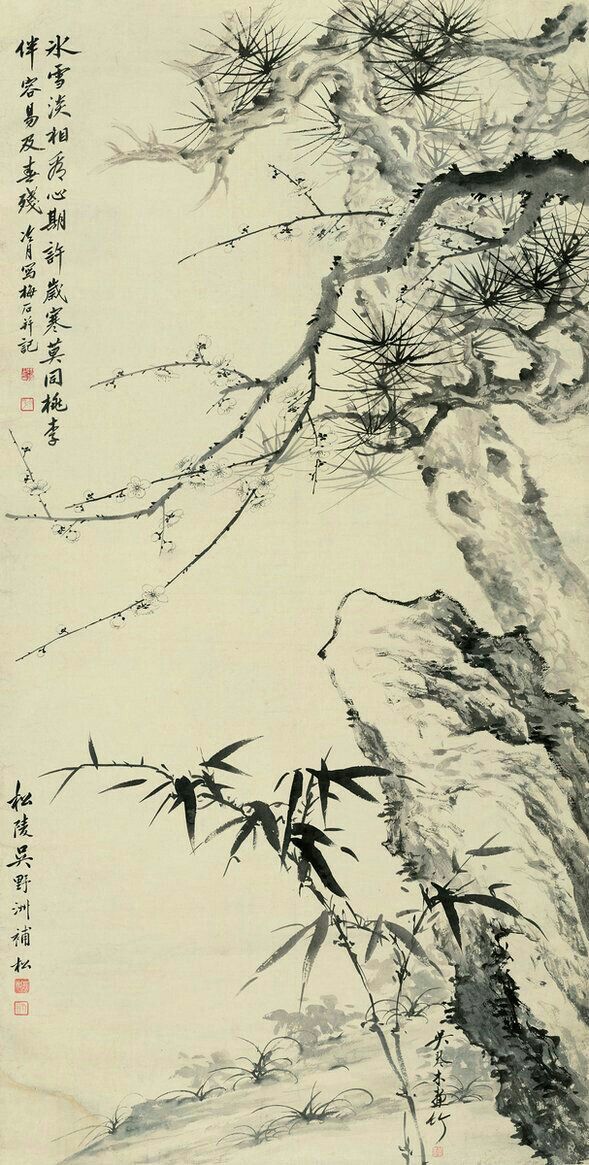 氷雪淡相看心期許歲寒莫同桃李
伴容易及春殘 冷月寫梅石并記
松陵吳野洲補松
吳琴木畫竹